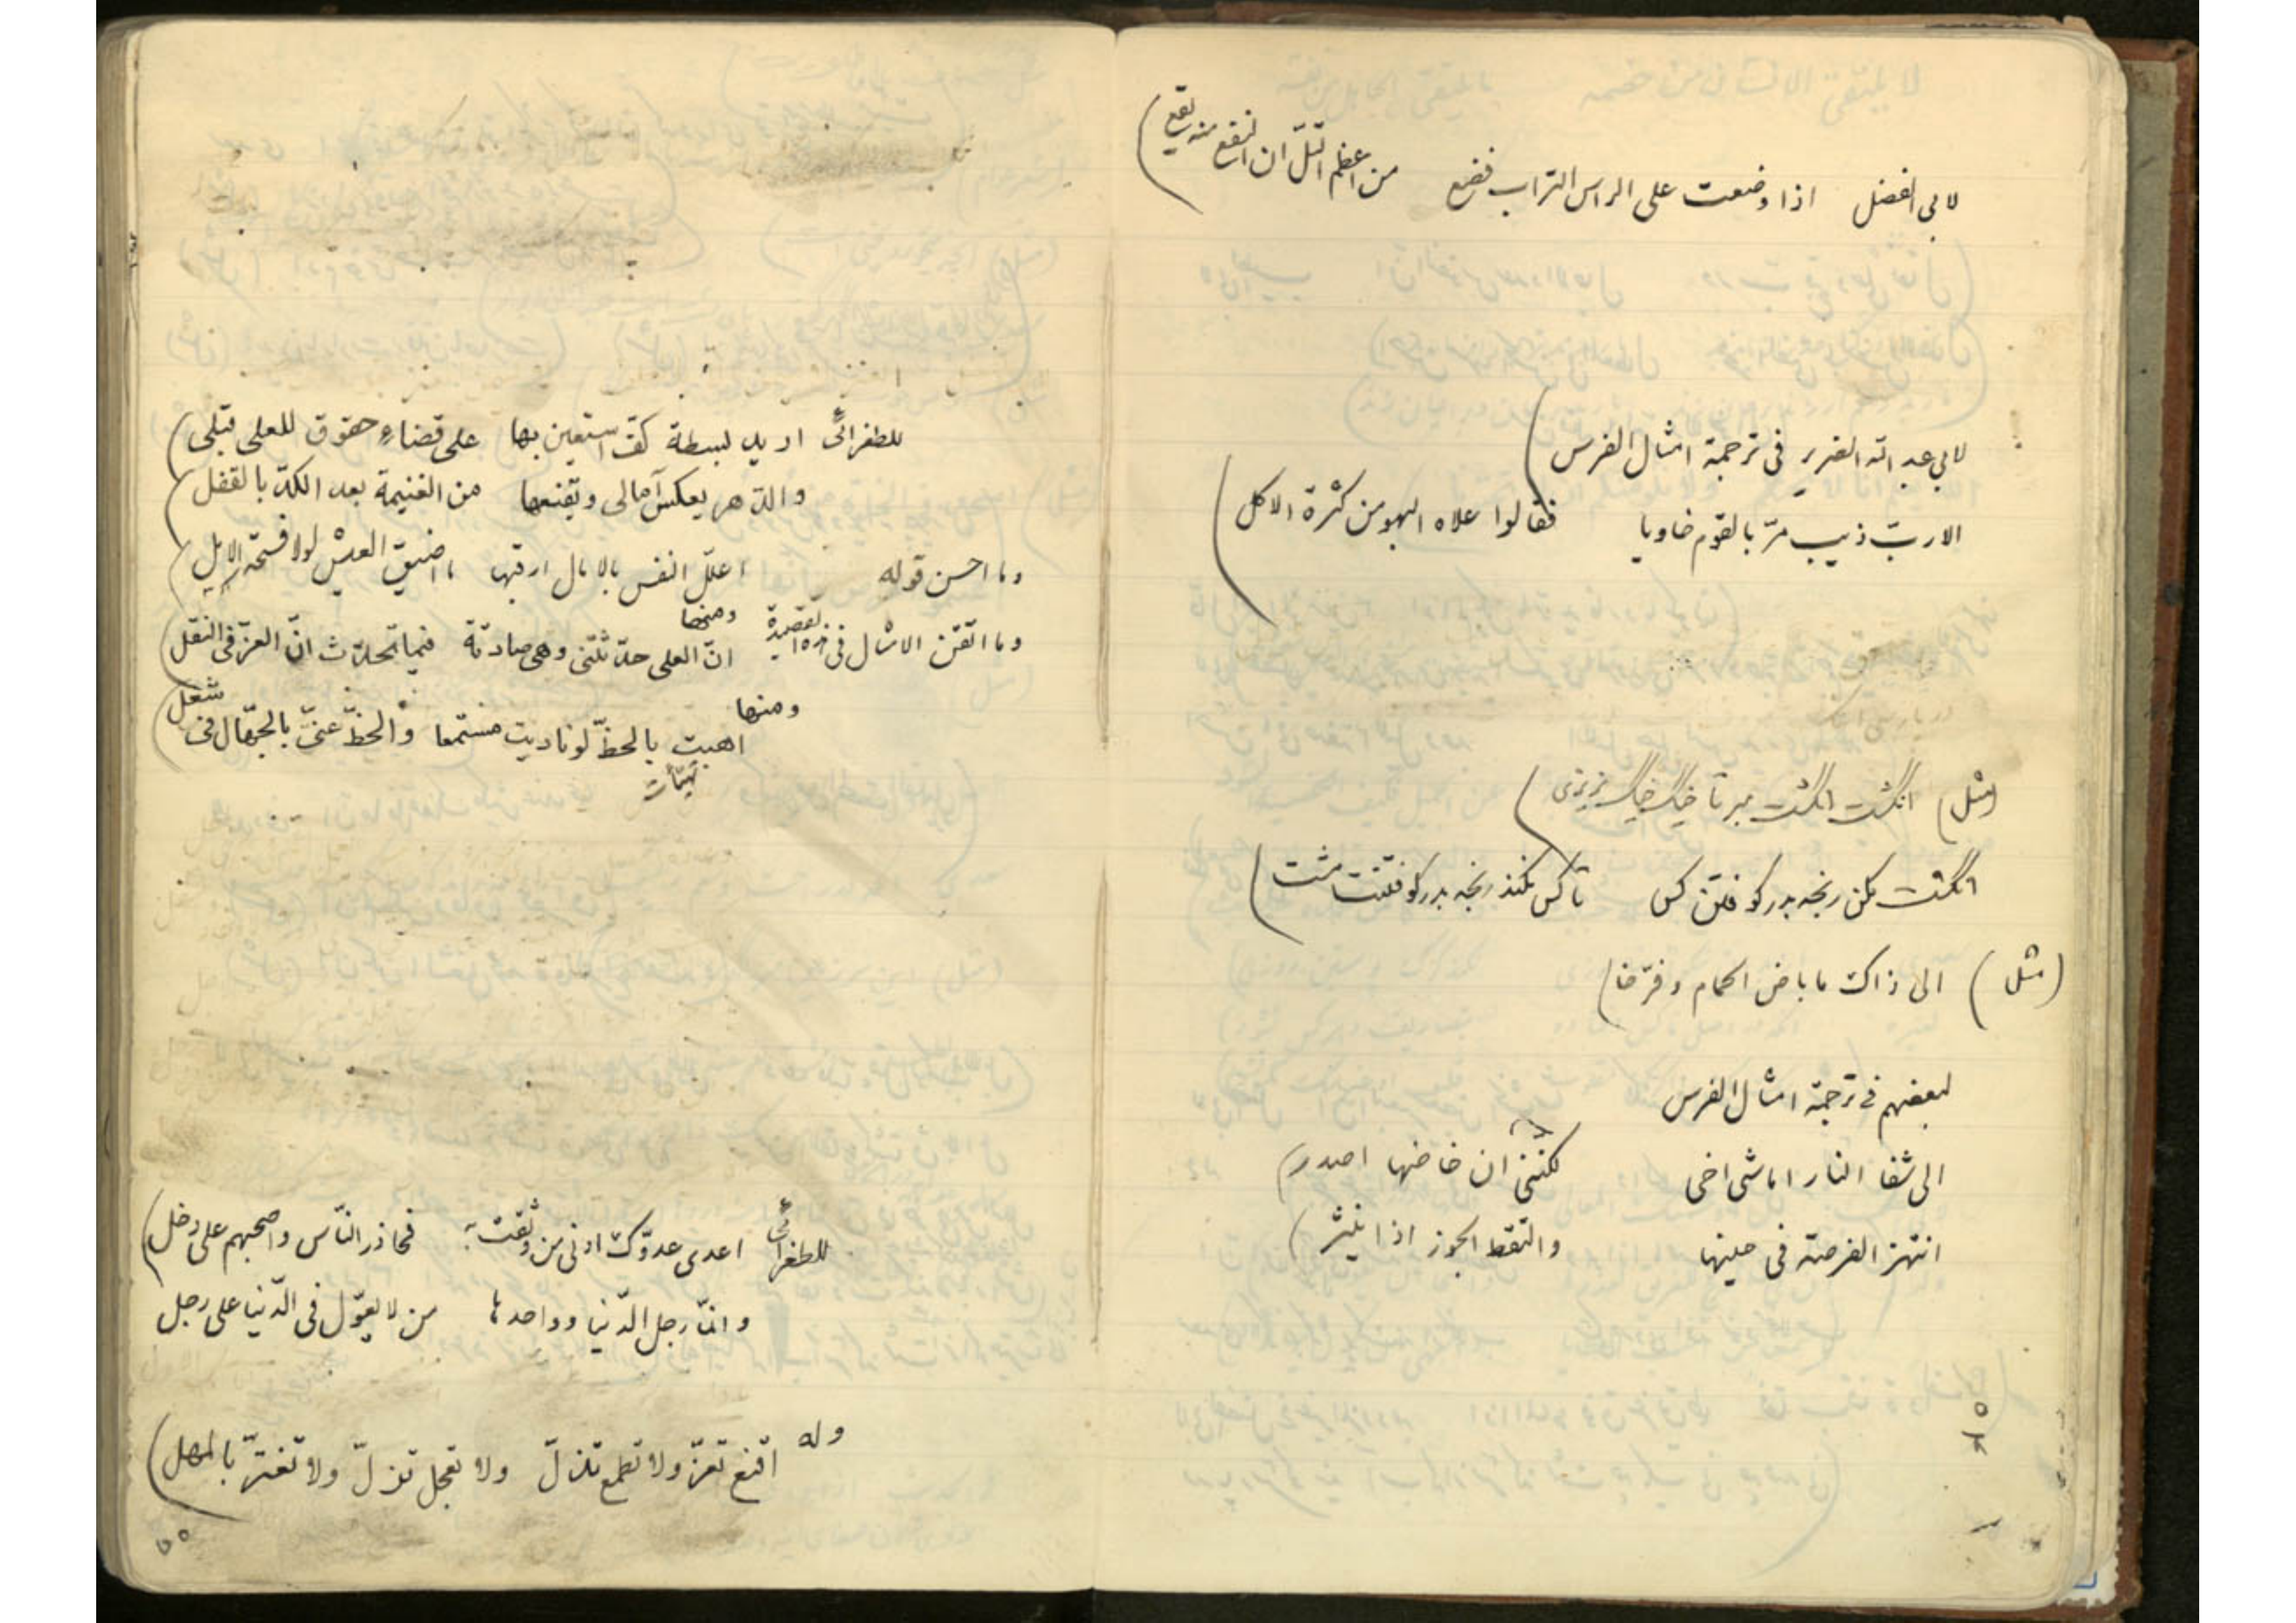 لابی الفضل اذا وضعت على الراس التراب فضع من اعظم التلّ ان النفع منه يقع
لابي عبد الله الضرير فى ترجمة امثال الفرس
الا ربّ ذيب مرّ بالقوم خاويا فقالوا علاه البهر من كثرة الاكل
(مثل) انگشت انگشت مبر تا خیک خیک نریزی
انگشت مکن رنجه بدر کوفتن کس تا کس نکند رنجه بدر کوفتنت مشت
(مثل) الى ذاك ما باض الحمام وفرّخا
لبعضهم فى ترجمة امثال الفرس
الى شفا النار اماشى اخى لكننى ان خاضها اصدر
انتهز الفرصة فى حينها والتقط الجوز اذا ينثر
للطغرائىّ اريد بسطة كفّ استعين بها على قضاءِ حقوق للعلى قبلى
والدّهر يعكس آمالى ويقنعها من الغنيمة بعد الكدّ بالقفل
وما احسن قوله اعلّل النفس بالامال ارقبها ما اضيق العيش لولا فسحة الامل
وما اتقن الامثال فى هذه القصيدة ومنها انّ العلى حدّثتنى وهى صادقة فيما تحدّث انّ العزّ فى النقل
ومنها
اهبت بالحظّ لو ناديت مستمعا والحظّ عنّى بالجهّال فى شغل
للطغرائىّ اعدى عدوّك ادنى من وثقت به فحاذر النّاس واصحبهم على دخل
وانّما رجل الدّنيا وواحدها من لا يعوّل فى الدّنيا على رجل
وله اقنع تعزّ ولا تطمع تذلّ ولا تعجل تزلّ ولا تغترّ بالمهل